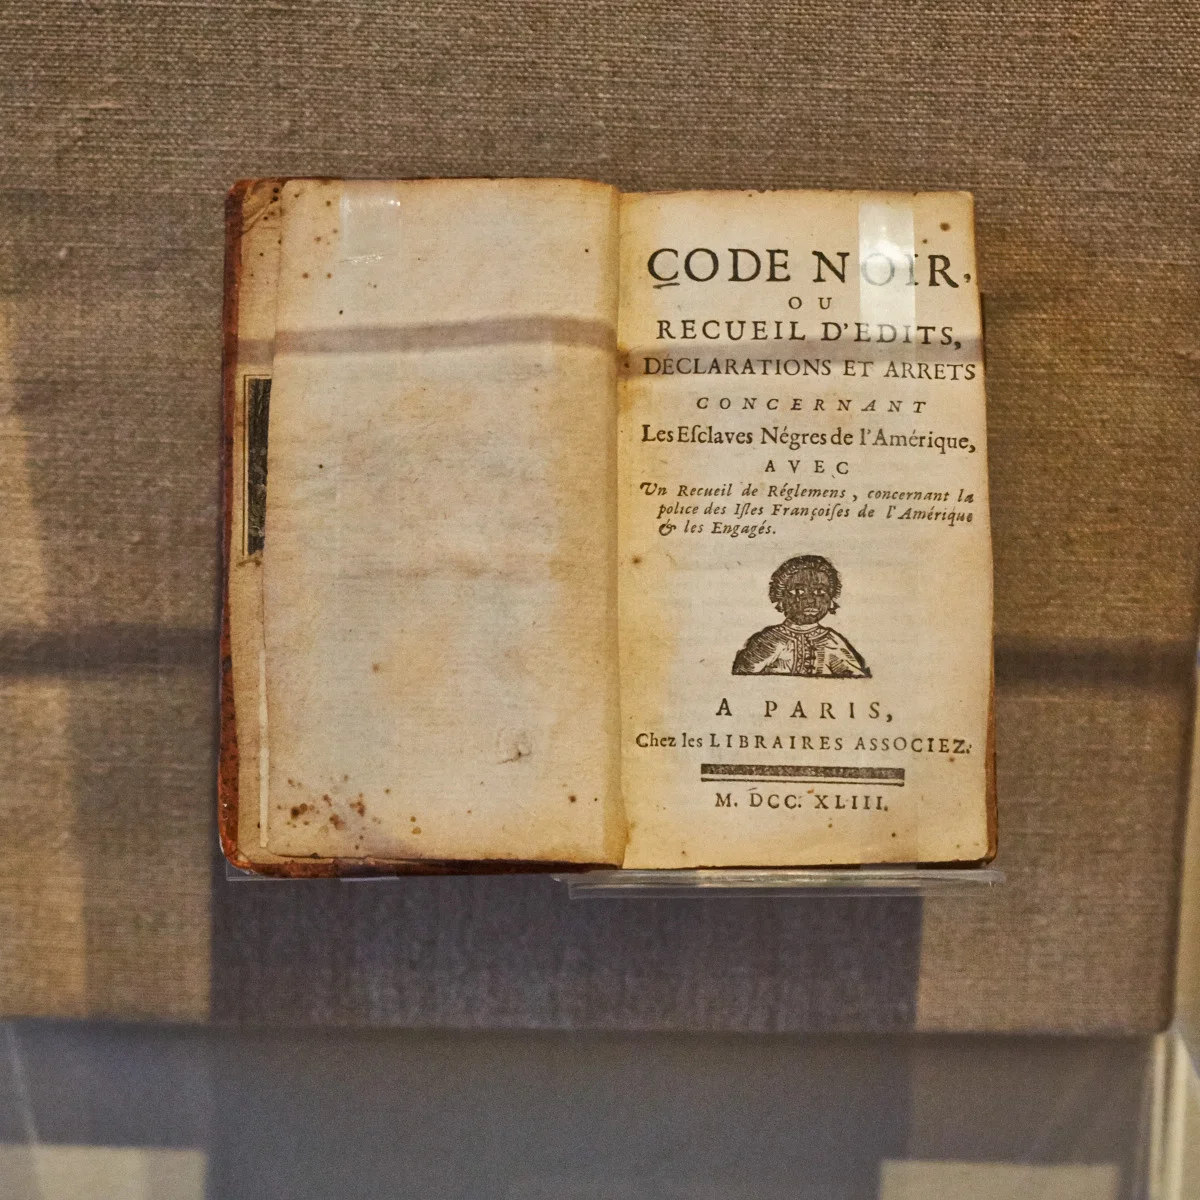 CODE NOIR,
OU
RECUEIL D'EDITS,
DÉCLARATIONS ET ARRETS
CONCERNANT
Les Eſclaves Négres de l'Amérique,
AVEC
Un Recueil de Réglemens, concernant la
police des Iſles Françoiſes de l'Amérique
& les Engagés.
A PARIS,
Chez les LIBRAIRES ASSOCIEZ.
M. DCC. XLIII.